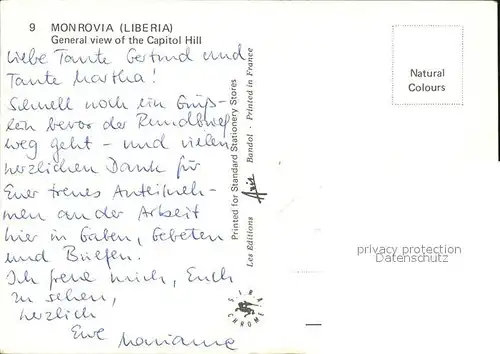 9 MONROVIA (LIBERIA)
General view of the Capitol Hill
Liebe Tante Gertrud und
Tante Martha!
Schnell noch ein Grüß-
lein bevor der Rundbrief
weg geht - und vielen
herzlichen Dank für
Euer treues Anteilneh-
men an der Arbeit
hier in Gaben, Gebeten
und Briefen.
Ich freue mich, Euch
zu sehen,
herzlich
Eure Marianne
Printed for Standard Stationery Stores
Les Editions Aris Bandol - Printed in France
Natural
Colours
privacy protection
Datenschutz
SIMA
CHROME